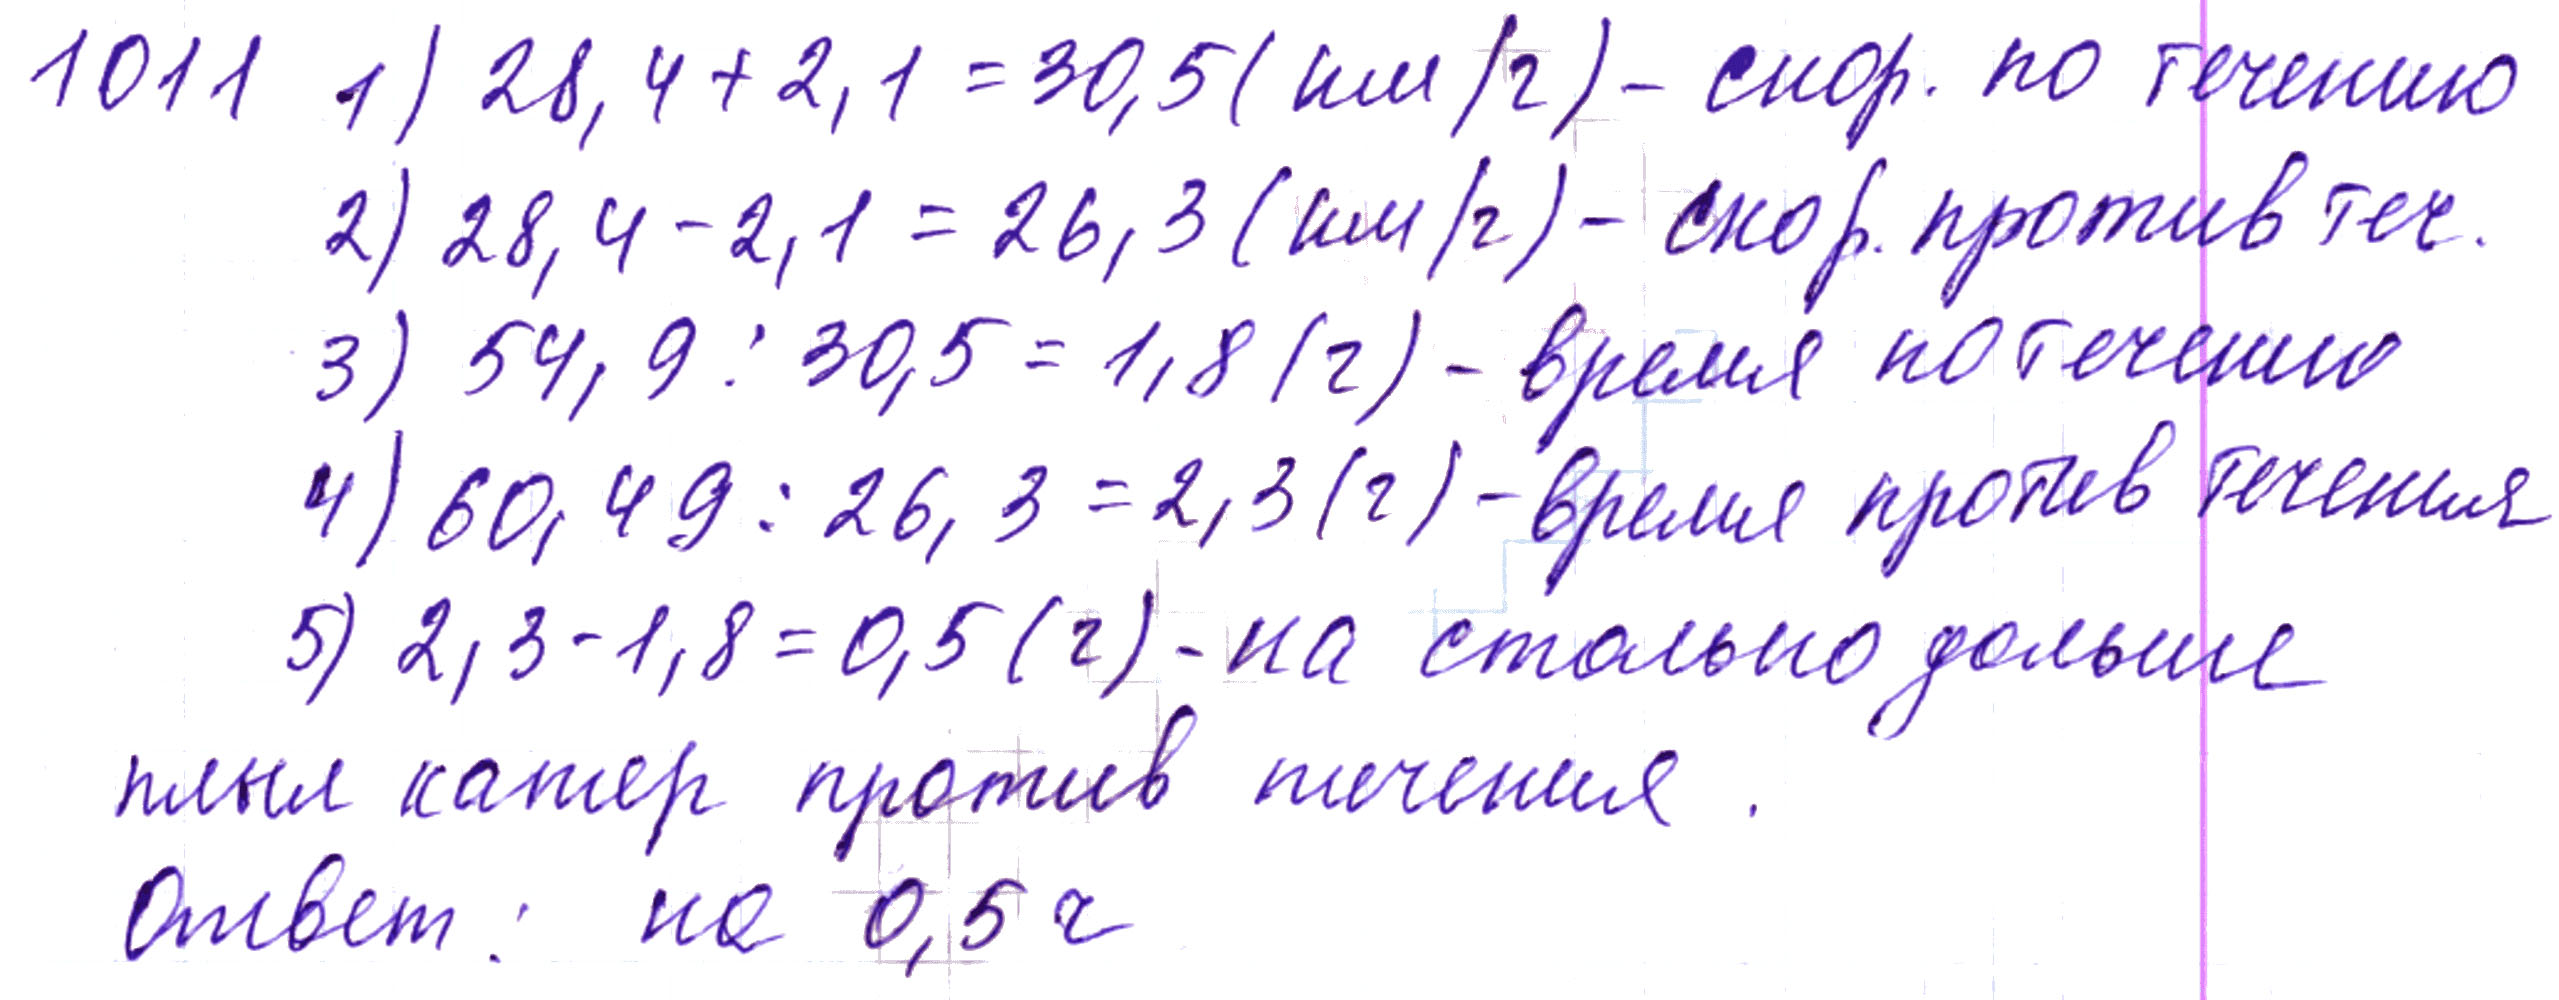 1011 1) 28,4 + 2,1 = 30,5 (км/ч) - скор. по течению
2) 28,4 - 2,1 = 26,3 (км/ч) - скор. против теч.
3) 54,9 : 30,5 = 1,8 (ч) - время по течению
4) 60,49 : 26,3 = 2,3 (ч) - время против течения
5) 2,3 - 1,8 = 0,5 (ч) - на столько дольше
плыл катер против течения.
Ответ: на 0,5 ч